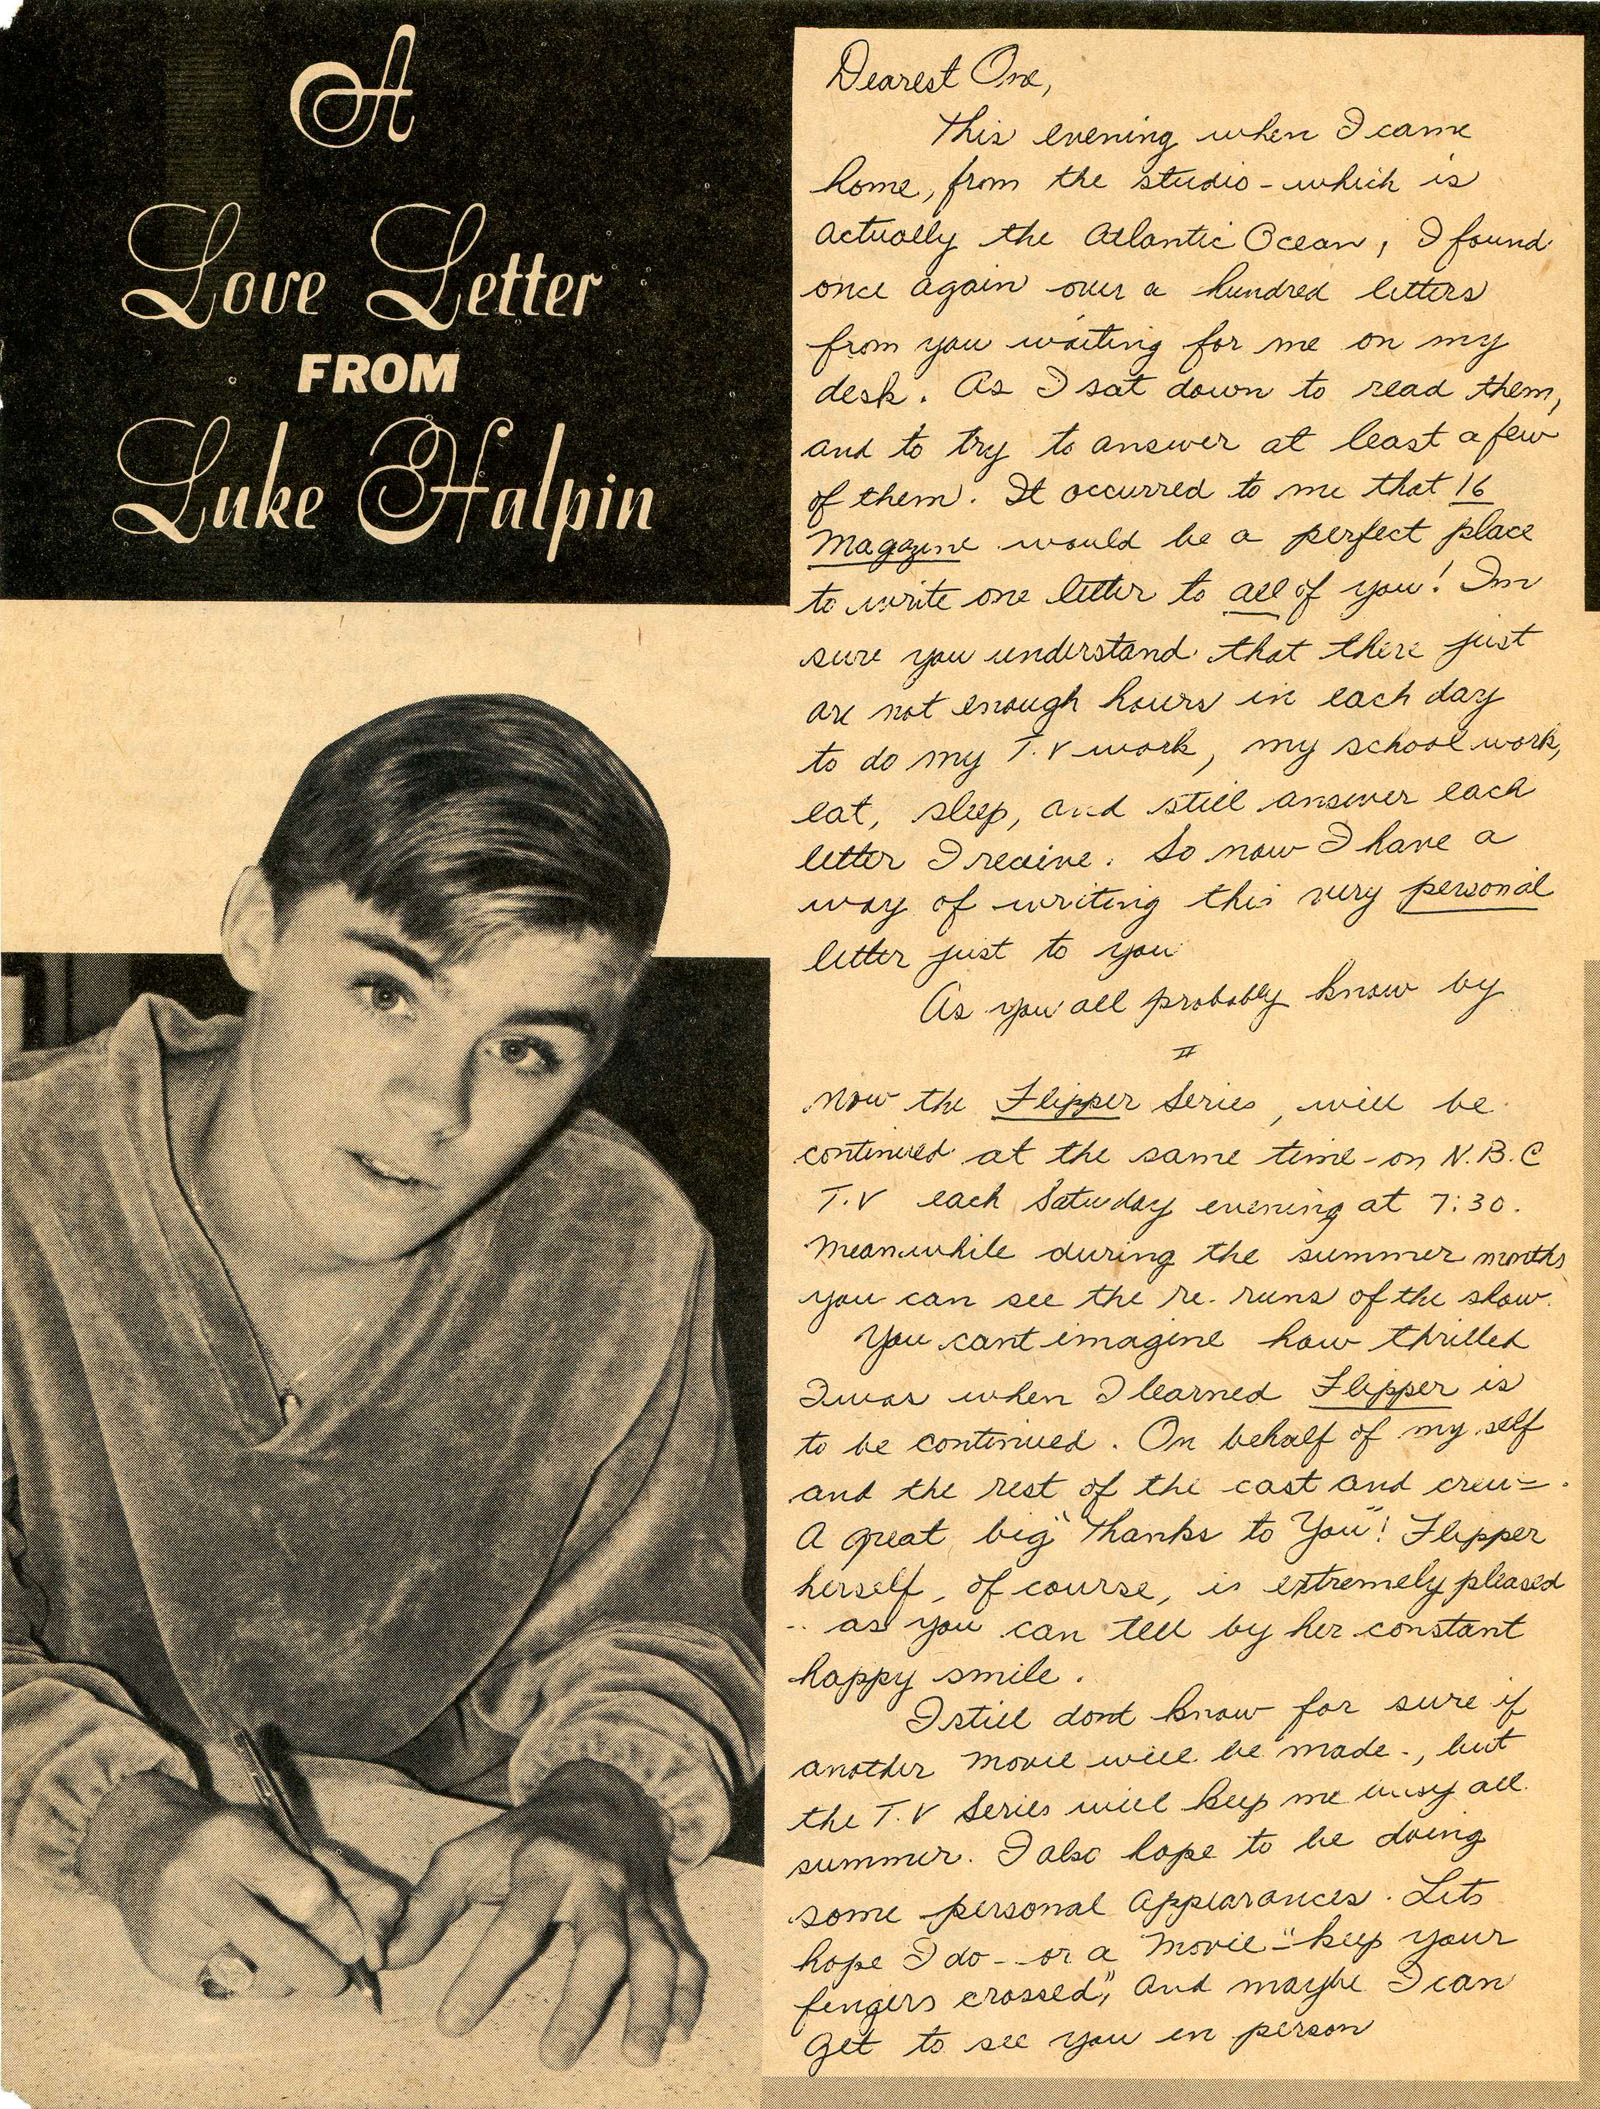 A
Love Letter
FROM
Luke Halpin
Dearest One,
This evening when I came
home, from the studio - which is
actually the Atlantic Ocean, I found
once again over a hundred letters
from you waiting for me on my
desk. As I sat down to read them,
and to try to answer at least a few
of them. It occurred to me that 16
Magazine would be a perfect place
to write one letter to all of you! Im
sure you understand that there just
are not enough hours in each day
to do my T.V work, my school work,
eat, sleep, and still answer each
letter I receive. So now I have a
way of writing this very personal
letter just to you
As you all probably know by
II
now the Flipper Series, will be
continued at the same time - on N.B.C
T.V each Saturday evening at 7:30.
Meanwhile during the summer months
you can see the re-runs of the show.
You cant imagine how thrilled
I was when I learned Flipper is
to be continued. On behalf of my self
and the rest of the cast and crew - .
A great big "Thanks to You"! Flipper
herself, of course, is extremely pleased
.. as you can tell by her constant
happy smile.
I still dont know for sure if
another Movie will be made -, but
the T.V Series will keep me busy all
summer. I also hope to be doing
some personal appearances. Lets
hope I do - or a Movie - "keep your
fingers crossed", and maybe I can
get to see you in person